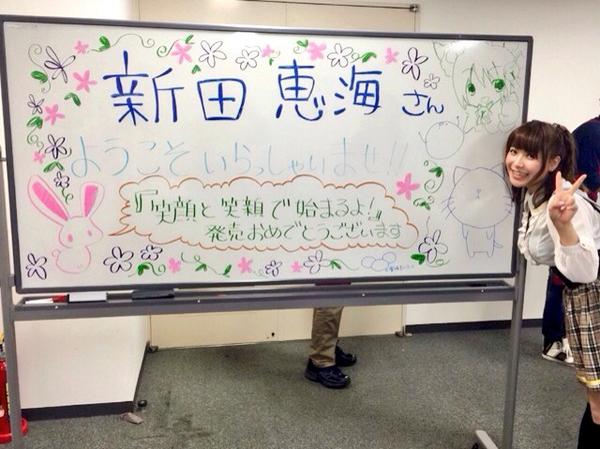 新田恵海さん
ようこそいらっしゃいませ!!
『笑顔と笑顔で始まるよ!』
発売おめでとうございます